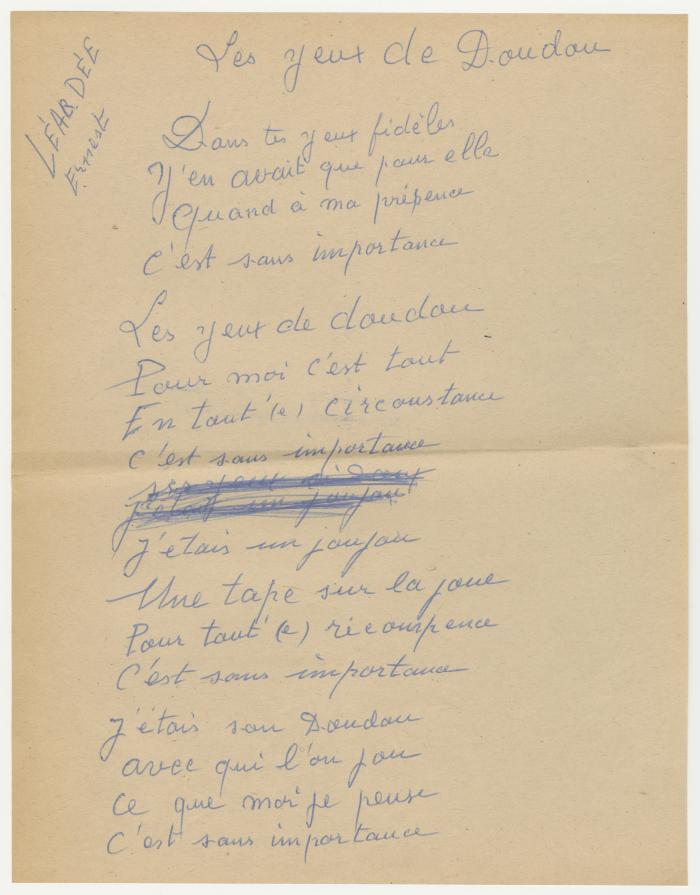 LÉARDÉE
Ernest
Les yeux de Doudou
Dans tes yeux fidèles
Y'en avait que pour elle
Quand à ma présence
C'est sans importance
Les yeux de doudou
Pour moi c'est tout
En tout'(e) circonstance
C'est sans importance
ses yeux si doux
j'étais un joujou
J'étais un joujou
Une tape sur la joue
Pour tout'(e) récompence
C'est sans importance
J'étais son Doudou
avec qui l'on jou
Ce que moi je pense
C'est sans importance